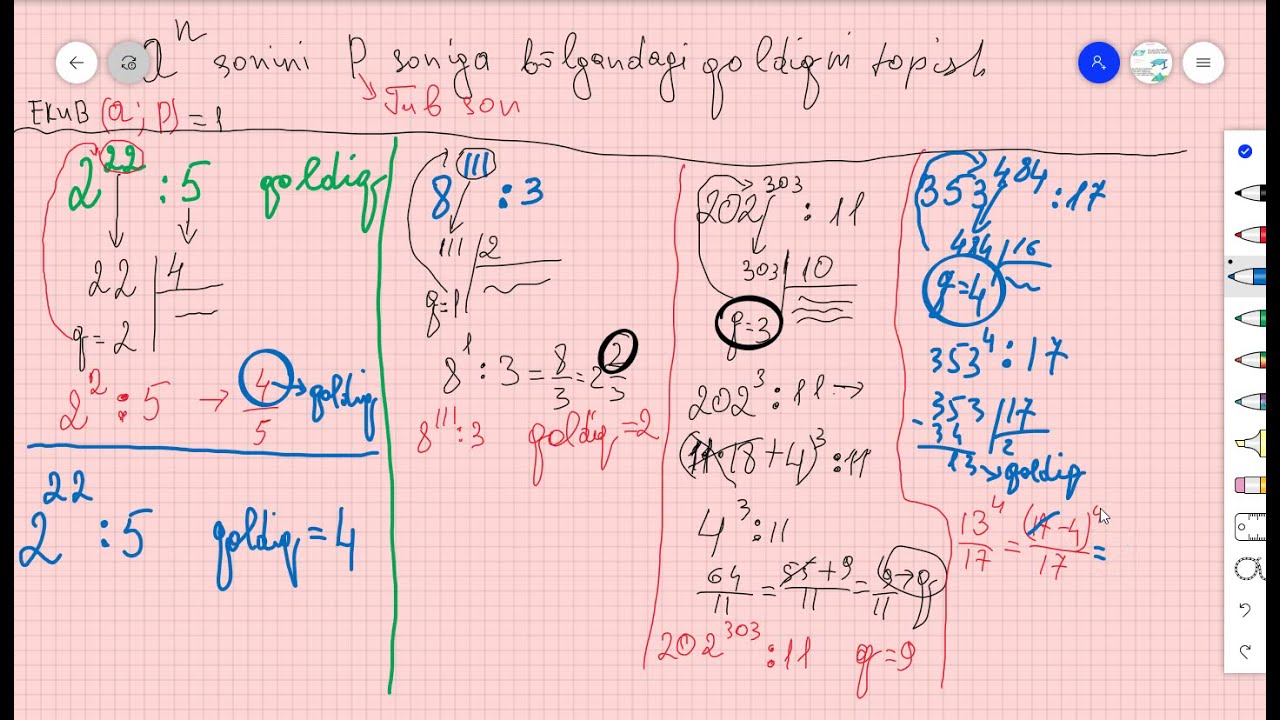 aⁿ sonini P soniga bo'lgandagi qoldiqni topish
EKUB (a; p) = 1
Tub son
2²² : 5 qoldiq
22 | 4
q=2
2² : 5 → 4/5 → qoldiq
2²² : 5 qoldiq = 4
8¹¹¹ : 3
111 | 2
q=1
8¹ : 3 = 8/3 = 2 2/3
8¹¹¹ : 3 qoldiq = 2
202³⁰³ : 11
303 | 10
q=3
202³ : 11 →
(11·18+4)³ : 11
4³ : 11
64/11 = 55+9/11 = 9/11 → q
202³⁰³ : 11 q=9
353⁴⁸⁴ : 17
484 | 16
q=4
353⁴ : 17
353 | 17
- 34 | 2
13 → qoldiq
13⁴/17 = (17-4)⁴/17 =